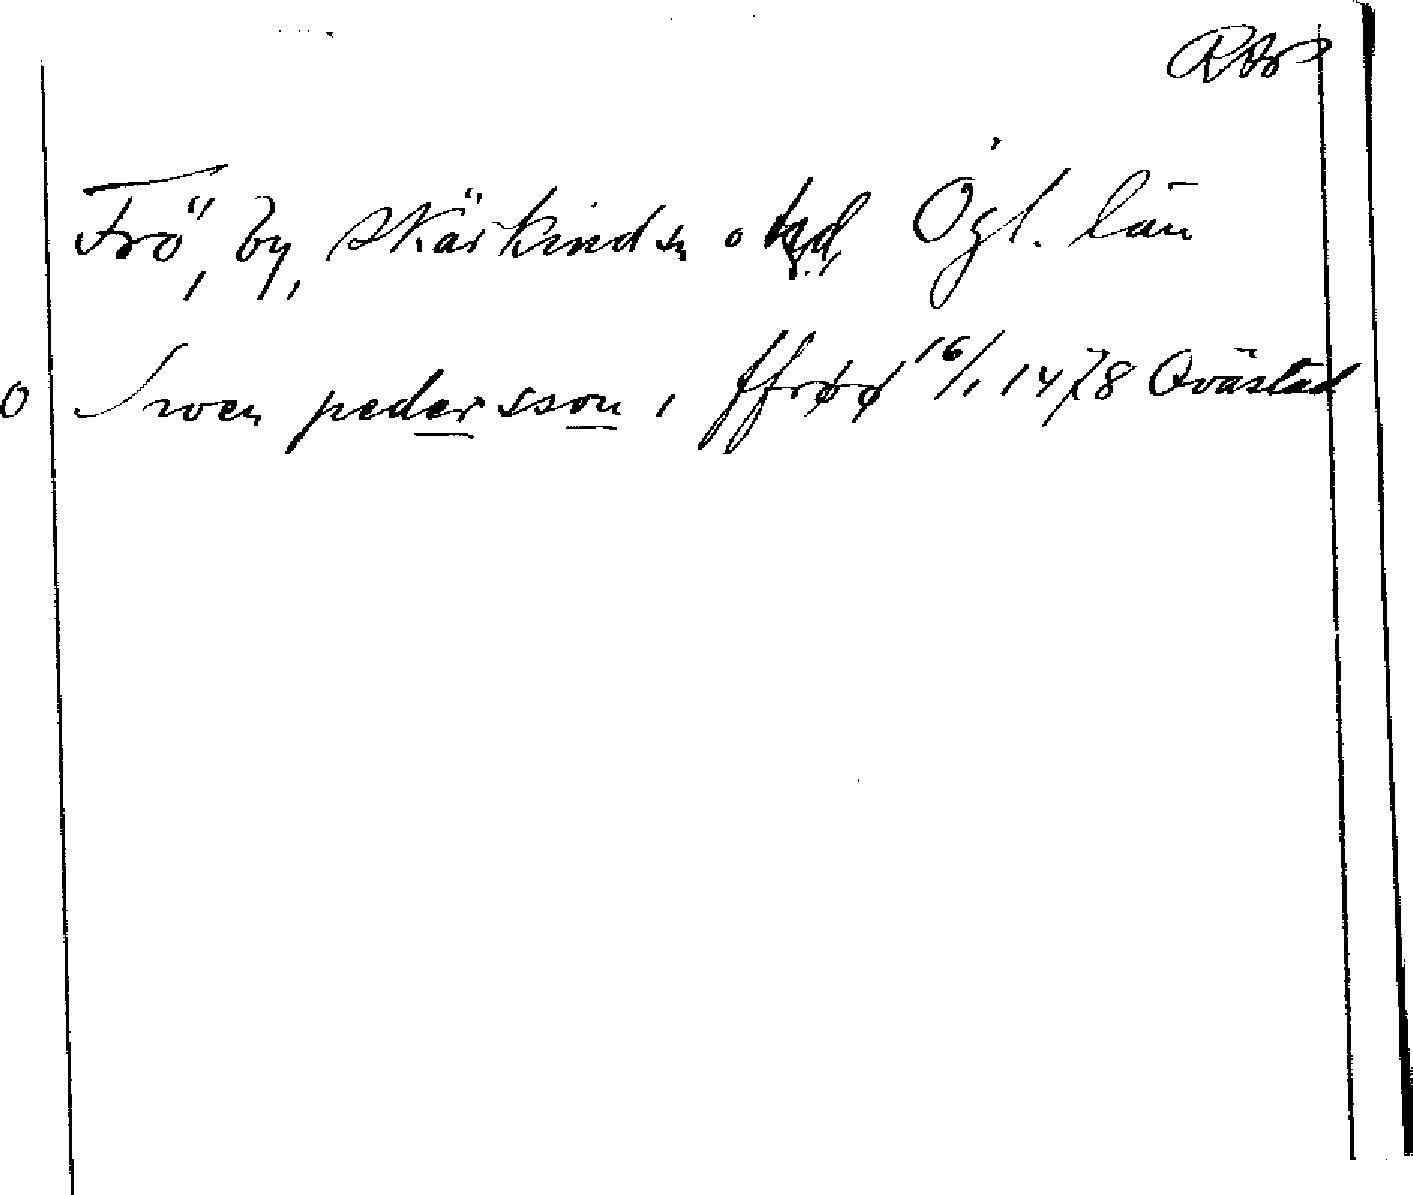 Frö, by, Skärkinds sn o hd, Ögl. län
O Swen pedersson i ffrøø 16/1 1478 Qvästad